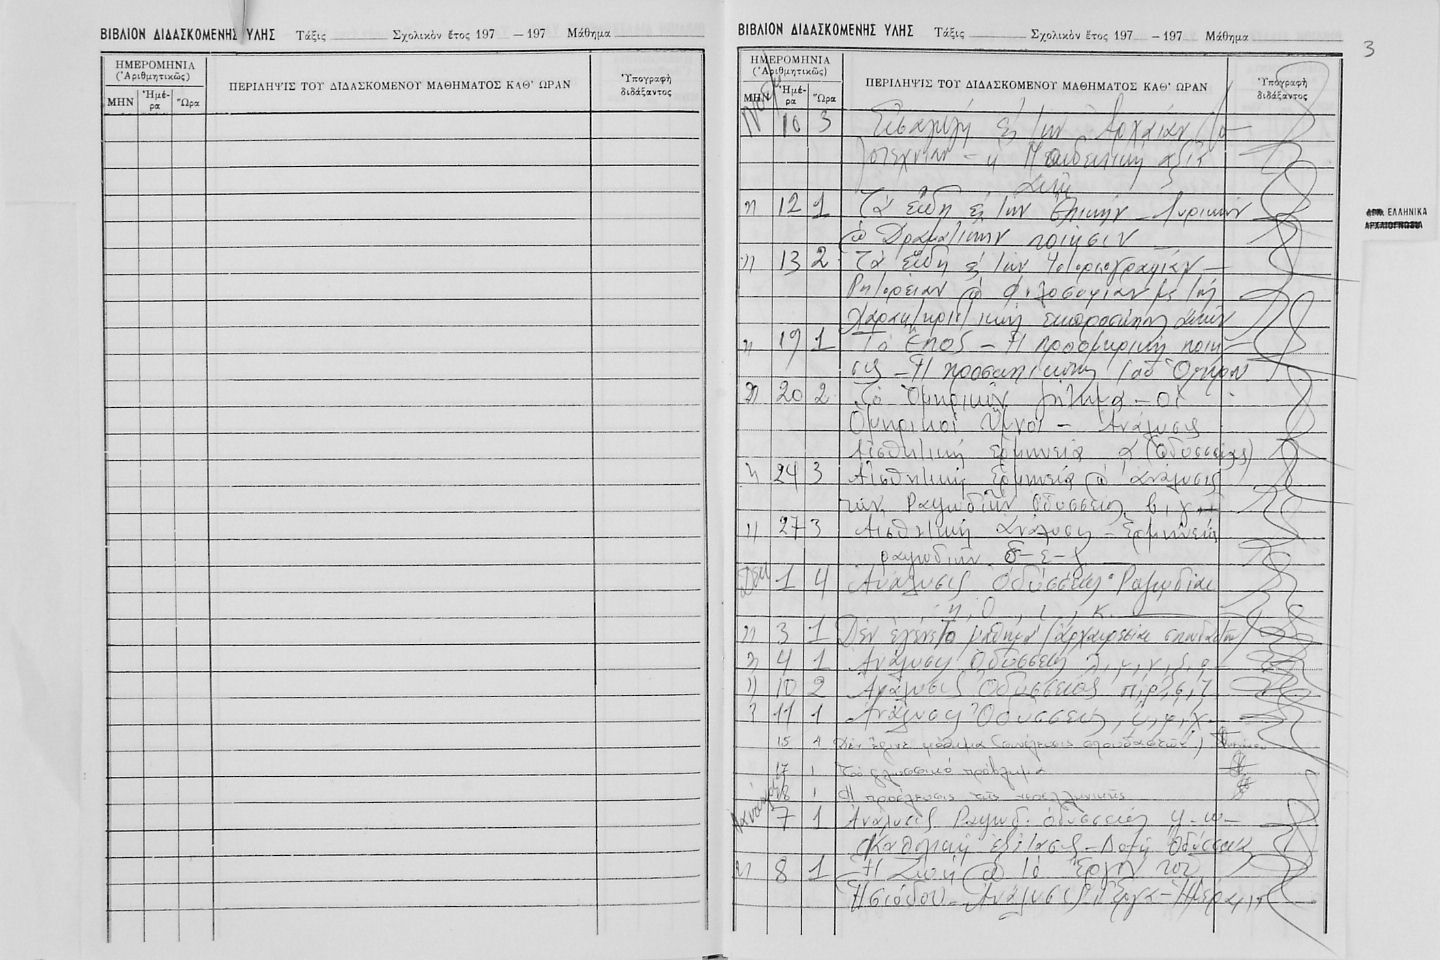 ΒΙΒΛΙΟΝ ΔΙΔΑΣΚΟΜΕΝΗΣ ΥΛΗΣ Τάξις Σχολικὸν ἔτος 197 — 197 Μάθημα
ΗΜΕΡΟΜΗΝΙΑ
(Ἀριθμητικῶς)
ΜΗΝ Ἡμέρα Ὥρα
ΠΕΡΙΛΗΨΙΣ ΤΟΥ ΔΙΔΑΣΚΟΜΕΝΟΥ ΜΑΘΗΜΑΤΟΣ ΚΑΘ' ΩΡΑΝ
Ὑπογραφὴ
διδάξαντος
ΒΙΒΛΙΟΝ ΔΙΔΑΣΚΟΜΕΝΗΣ ΥΛΗΣ Τάξις Σχολικὸν ἔτος 197 — 197 Μάθημα
3
ΗΜΕΡΟΜΗΝΙΑ
(Ἀριθμητικῶς)
ΜΗΝ Ἡμέρα Ὥρα
ΠΕΡΙΛΗΨΙΣ ΤΟΥ ΔΙΔΑΣΚΟΜΕΝΟΥ ΜΑΘΗΜΑΤΟΣ ΚΑΘ' ΩΡΑΝ
Ὑπογραφὴ
διδάξαντος
10 3 Εἰσαγωγὴ εἰς τὴν Ἀρχαίαν Λο-
γοτεχνίαν - ἡ Παιδευτικὴ ἀξία
" 12 1 Τὰ εἴδη εἰς τὴν Ἐπικὴν - Λυρικὴν
Δραματικὴν ποίησιν
" 13 2 Τὰ εἴδη εἰς τὴν Ἱστοριογραφίαν -
Ρητορείαν Φιλοσοφίαν με τοὺς
χαρακτηριστικοὺς ἐκπροσώπους
" 19 1 Τὸ Ἔπος - Ἡ προομηρικὴ ποίη-
σις - Ἡ προσωπικότης τοῦ Ὁμήρου
" 20 2 Τὸ Ὁμηρικὸν ζήτημα - οἱ
Ὁμηρικοὶ Ὕμνοι - Ἀνάλυσις
Αἰσθητικὴ ἑρμηνεία α (Ὀδυσσείας)
" 24 3 Αἰσθητικὴ Ἑρμηνεία ἀνάλυσις
τῶν Ραψωδιῶν Ὀδυσσείας β, γ
" 27 3 Αἰσθητικὴ Ἀνάλυσις - Ἑρμηνεία
ραψωδιῶν δ-ε-ζ
Δεκ 1 4 Ἀνάλυσις Ὀδυσσείας Ραψωδίαι
η, θ, ι, κ.
" 3 1 Δὲν ἐγένετο μάθημα (ἀρχαιρεσίαι σπουδαστῶν)
" 4 1 Ἀνάλυσις Ὀδυσσείας λ, μ, ν, ξ, ο
" 10 2 Ἀνάλυσις Ὀδυσσείας π, ρ, σ, τ
" 11 1 Ἀνάλυσις Ὀδυσσείας, υ, φ, χ.
15 4 Δὲν ἔγινε μάθημα (συνέλευσις σπουδαστῶν)
17 1 Τὸ γλωσσικὸ πρόβλημα
18 1 Ἡ προέλευσις τῆς νεοελληνικῆς
Ἰανουάρ 7 1 Ἀνάλυσις Ραψωδ. Ὀδυσσείας ψ-ω-
Καθολικὴ ἐξέτασις - Ὀδύσσεια
" 8 1 Ἡ Ζωὴ τὸ Ἔργον τοῦ
Ἡσιόδου - Ἀνάλυσις Ἔργα - Ἡμέραι
ΕΛΛΗΝΙΚΑ
ΑΡΧΑΙΟΓΝΩΣΙΑ